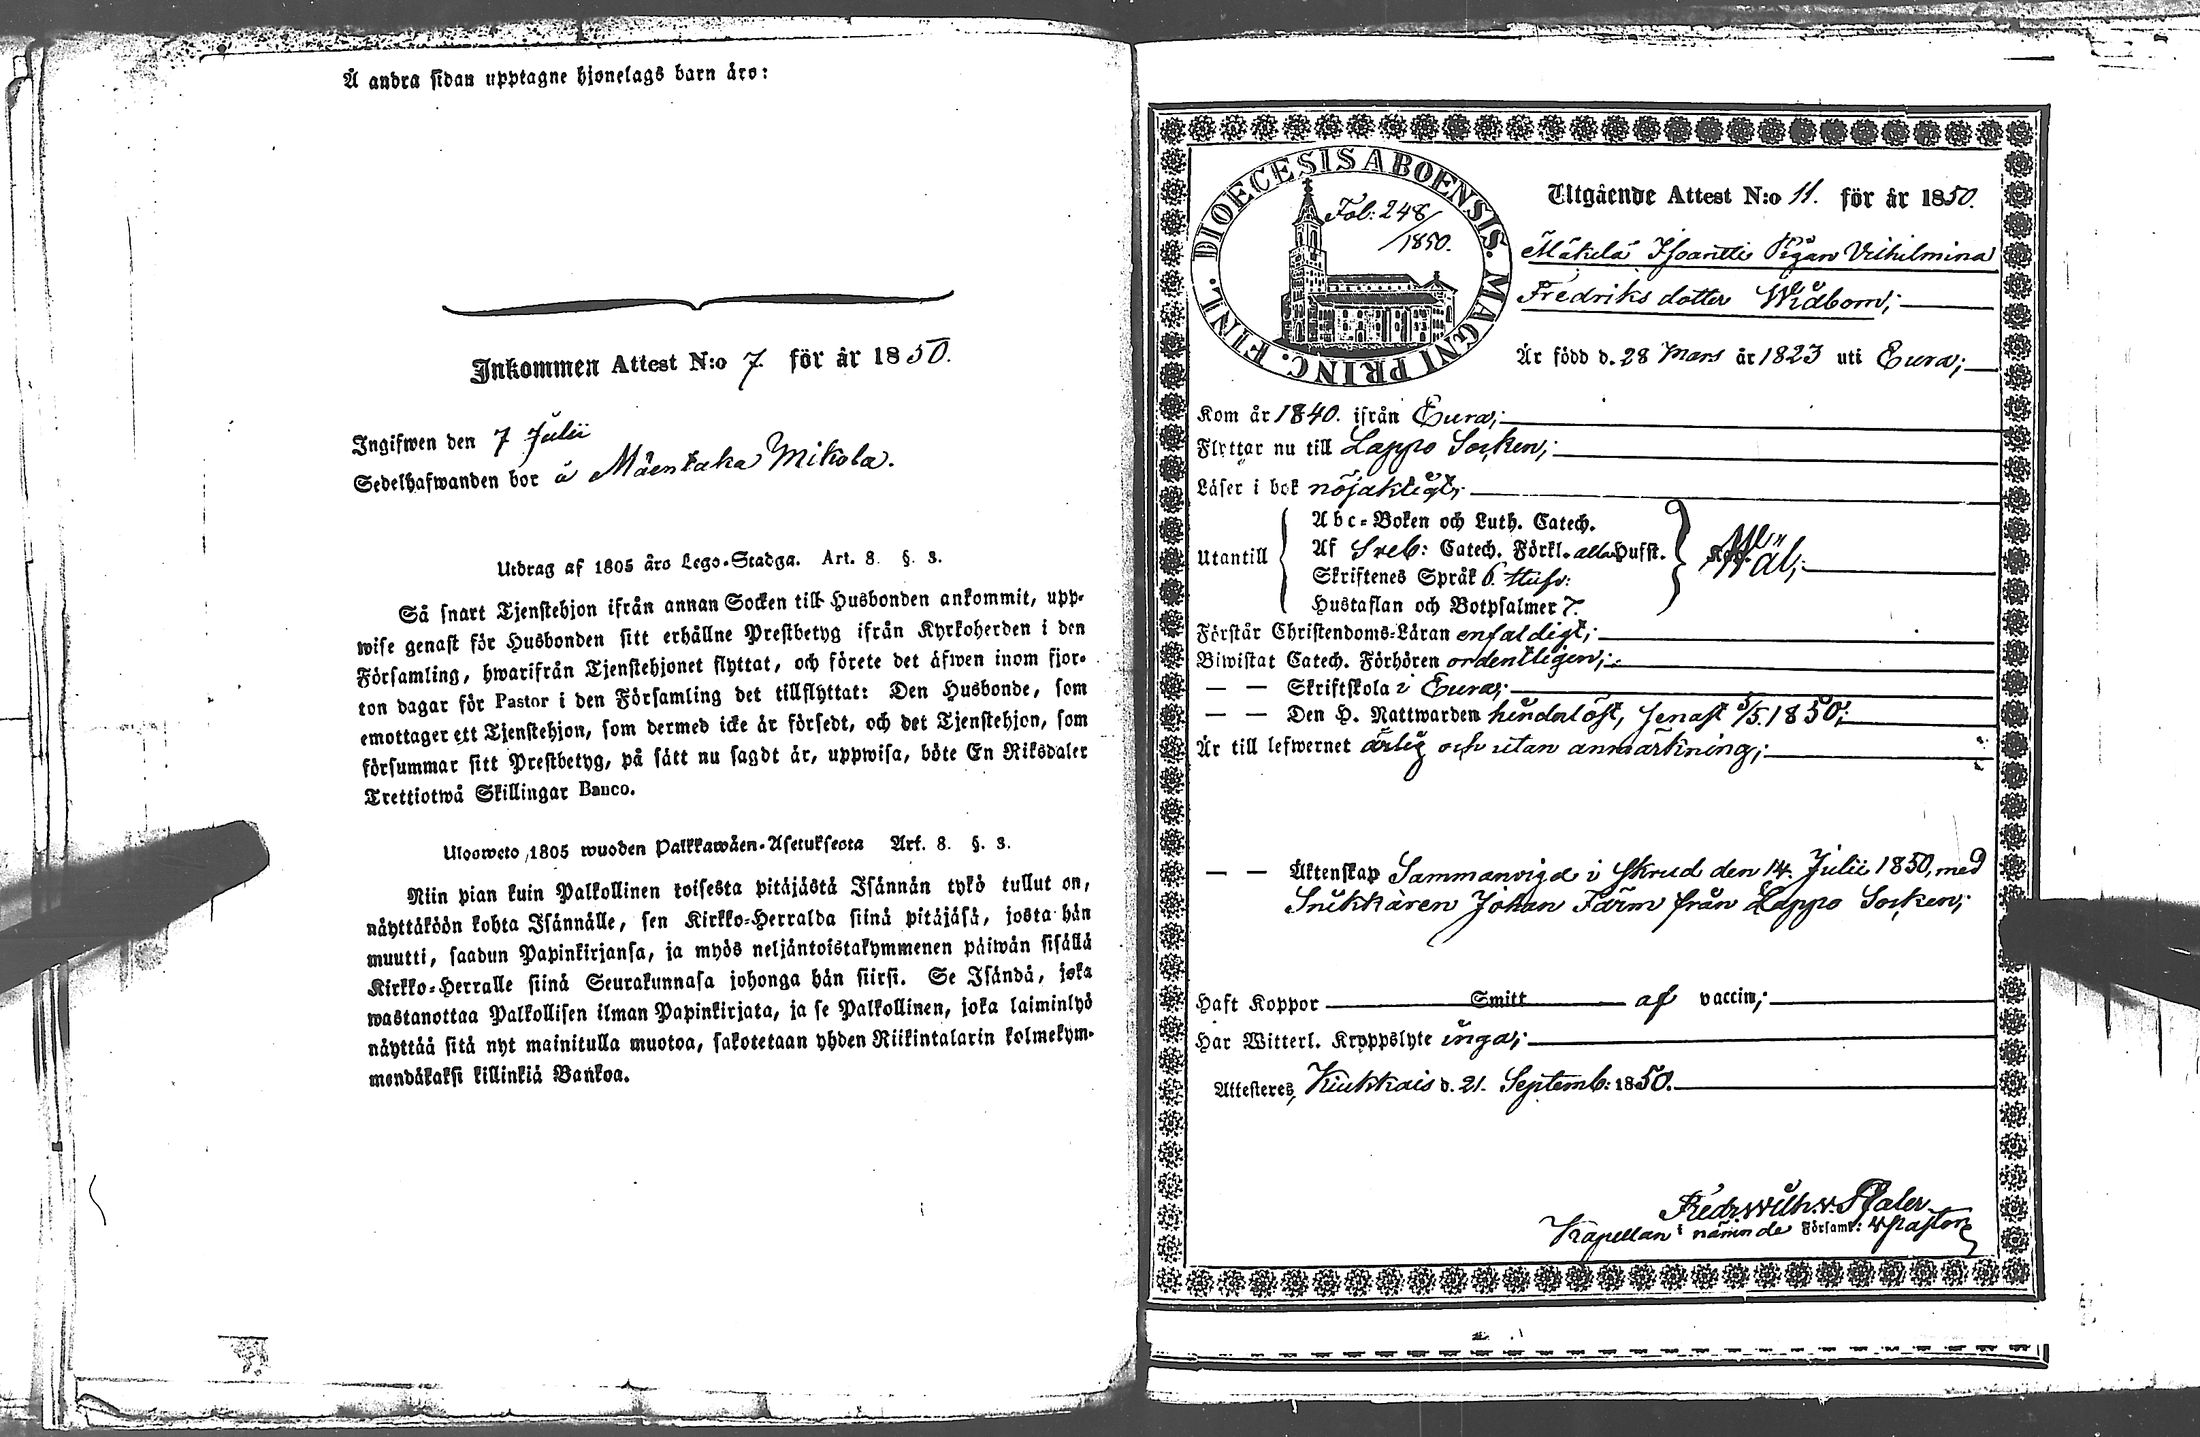 Å andra sidan upptagne hjonelags barn äro:
Inkommen Attest N:o 7. för år 1850.
Ingifwen den 7 Julii
Sedelhafwanden bor å Mäentaka Mikola.
Utdrag af 1805 års Lego-Stadga. Art. 8. §. 3.
Så snart Tjenstehjon ifrån annan Socken till Husbonden ankommit, upp-
wise genast för Husbonden sitt erhållne Prestbetyg ifrån Kyrkoherden i den
Församling, hwarifrån Tjenstehjonet flyttat, och förete det äfwen inom fjor-
ton dagar för Pastor i den Församling det tillflyttat: Den Husbonde, som
emottager ett Tjenstehjon, som dermed icke är försedt, och det Tjenstehjon, som
försummar sitt Prestbetyg, på sätt nu sagdt är, uppwisa, böte En Riksdaler
Trettiotwå Skillingar Banco.
Ulosweto 1805 wuoden Palkkawäen-Asetuksesta Art. 8. §. 3.
Niin pian kuin Palkollinen toisesta pitäjästä Isännän tykö tullut on,
näyttäköön kohta Isännälle, sen Kirkko-Herralda siinä pitäjäsä, josta hän
muutti, saadun Papinkirjansa, ja myös neljäntoistakymmenen päiwän sisällä
Kirkko-Herralle siinä Seurakunnasa johonga hän siirsi. Se Isändä, joka
wastanottaa Palkollisen ilman Papinkirjata, ja se Palkollinen, joka laiminlyö
näyttää sitä nyt mainitulla muotoa, sakotetaan yhden Riikintalarin kolmekym-
mendäkaksi killinkiä Bankoa.
DIOECESIS ABOENSIS. MAGNI PRINC. FINL.
Fol: 248/1850.
Utgående Attest N:o 11. för år 1850.
Mäkelä Pigan Vilhilmina
Fredriks dotter Widbom;
Är född d. 28 Mars år 1823 uti Eura;
Kom år 1840. ifrån Eura;
Flyttar nu till Lappo Socken;
Läser i bok nöjaktigt;
Utantill
Abc-Boken och Luth. Catech.
Af Sveb: Catech. Förkl. alla Hufst.
Skriftenes Språk 6. Hufv:
Hustaflan och Botpsalmer 7.
Wäl;
Förstår Christendoms-Läran enfaldigt;
Biwistat Catech. Förhören ordentligen;
— — Skriftskola i Eura;
— — Den H. Nattwarden hinderlöst, senast 5/5 1850;
Är till lefwernet ärlig och utan anmärkning;
— — Äktenskap Sammanvigd i Skrud den 14. Julii 1850, med
Snikkaren Johan Färm från Lappo Socken;
Haft Koppor Smitt af vaccin;
Har Witterl. Kroppslyte inga;
Attesteres, Kiukkais d. 21. Septemb: 1850.
Fredr Wilh. v. Pfaler
Kapellan i nämnde Församl: v Pastor